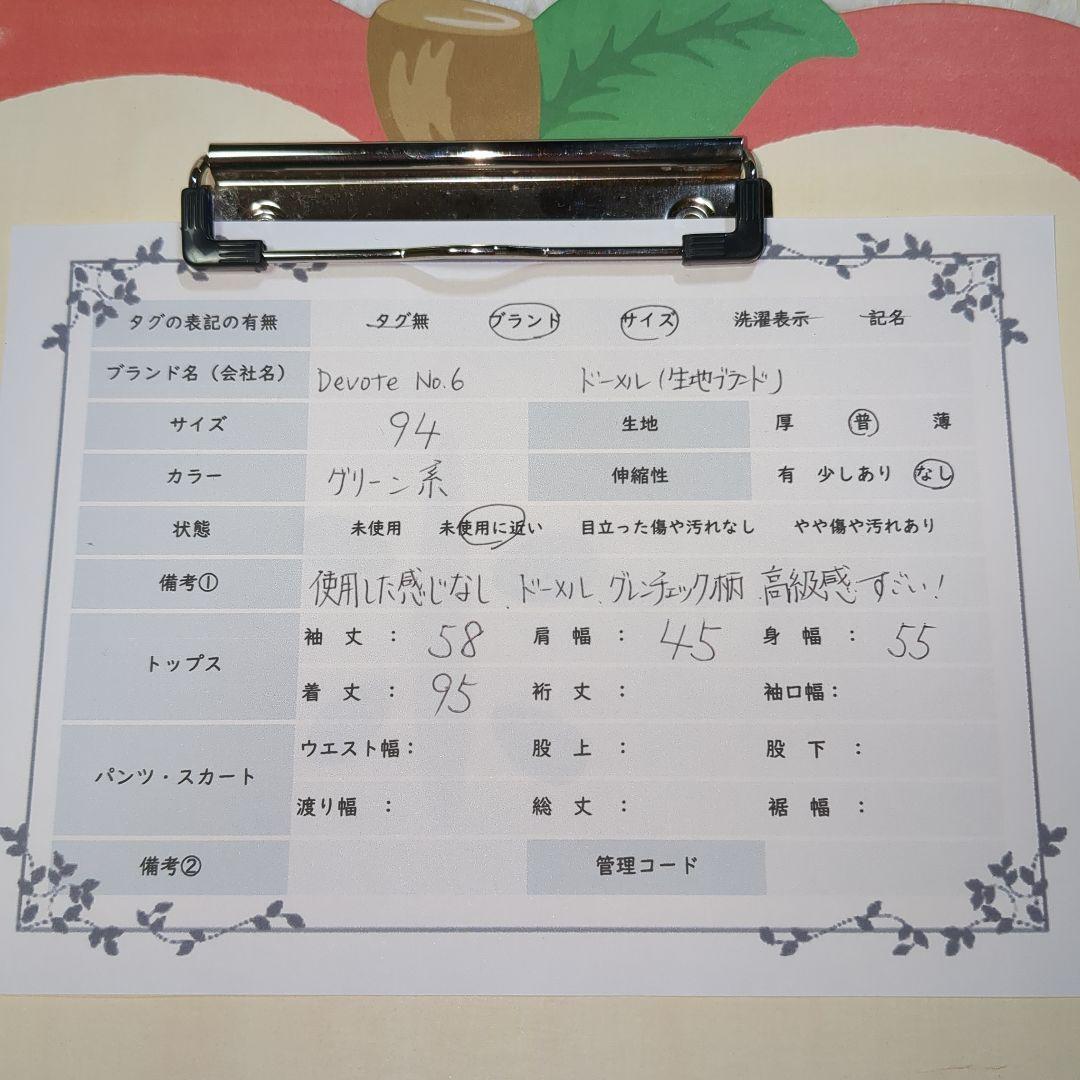 タグの表記の有無 タグ無 ブランド サイズ 洗濯表示 記名
ブランド名（会社名） Devote No.6 ドーメル（生地ブランド）
サイズ 94 生地 厚 普 薄
カラー グリーン系 伸縮性 有 少しあり なし
状態 未使用 未使用に近い 目立った傷や汚れなし やや傷や汚れあり
備考① 使用した感じなし、ドーメル、グレンチェック柄 高級感すごい！
トップス 袖丈：58 肩幅：45 身幅：55
着丈：95 裄丈： 袖口幅：
パンツ・スカート ウエスト幅： 股上： 股下：
渡り幅： 総丈： 裾幅：
備考② 管理コード